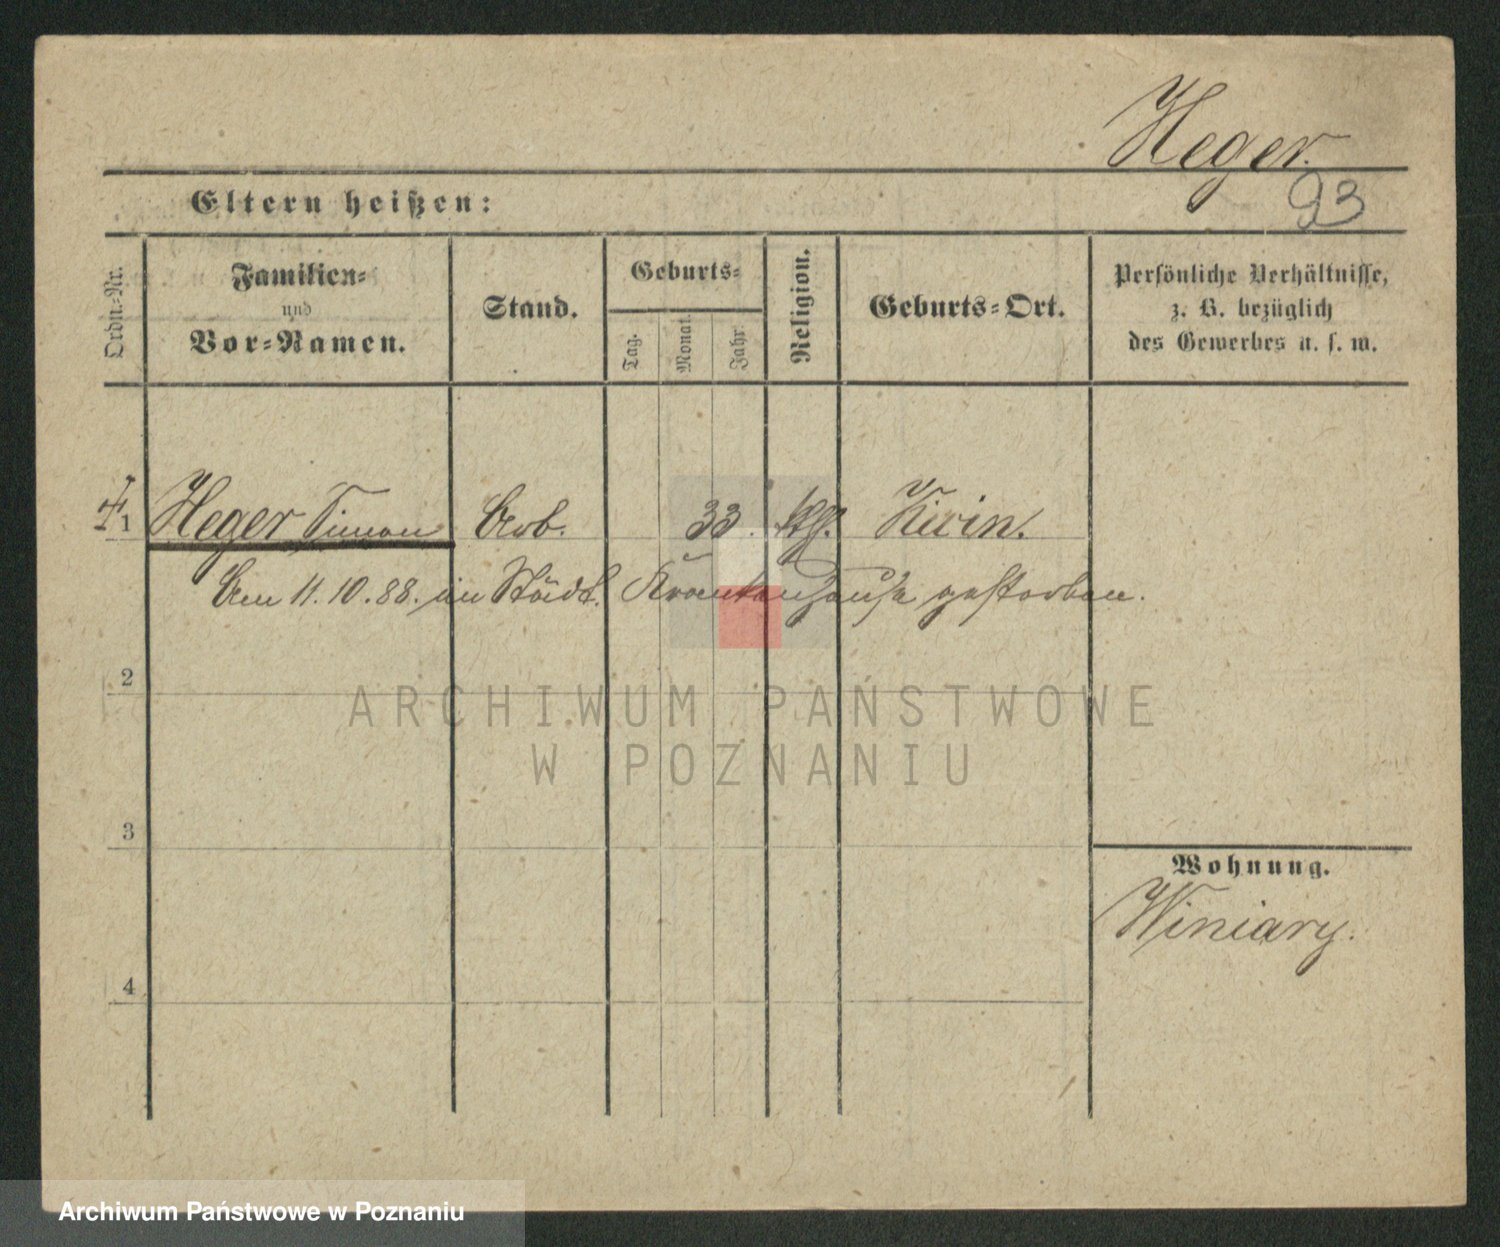 Heger.
93
Eltern heißen:
Ordn.-Nr.
Familien-
und
Vor-Namen.
Stand.
Geburts-
Tag.
Monat.
Jahr.
Religion.
Geburts-Ort.
Persönliche Verhältnisse,
z. B. bezüglich
des Gewerbes u. s. w.
1 Heger Simon Arb. 33. kth. Kicin.
Am 11.10.88. im Städt. Krankenhause gestorben.
2
ARCHIWUM PAŃSTWOWE
W POZNANIU
3
Wohnung.
Winiary.
4
Archiwum Państwowe w Poznaniu